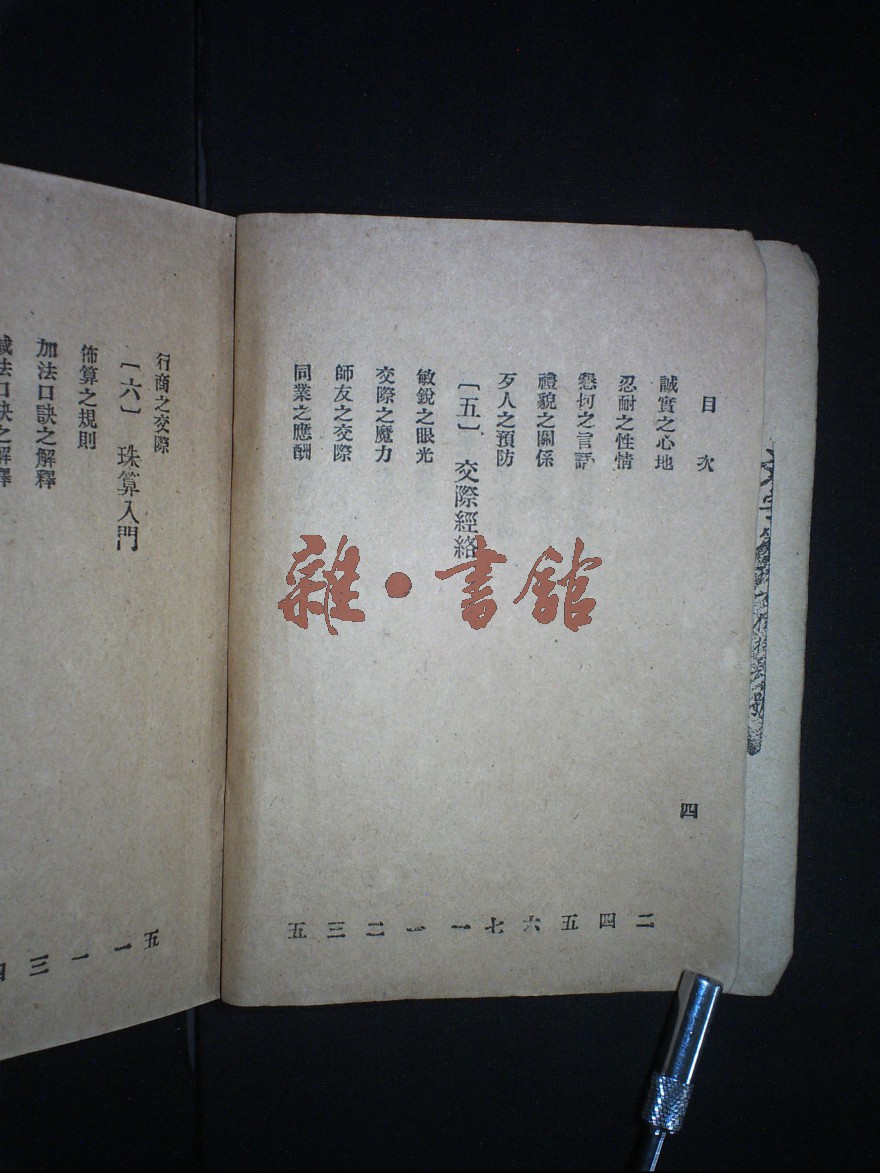 目次
四
誠實之心地 二
忍耐之性情 四
懇切之言話 五
禮貌之關係 六
歹人之預防 七
〔五〕 交際經絡 一
敏銳之眼光 一
交際之魔力 二
師友之交際 三
同業之應酬 五
行商之交際 五
〔六〕 珠算入門 一
佈算之規則 一
加法口訣之解釋 三
減法口訣之解釋 四
雜·書館